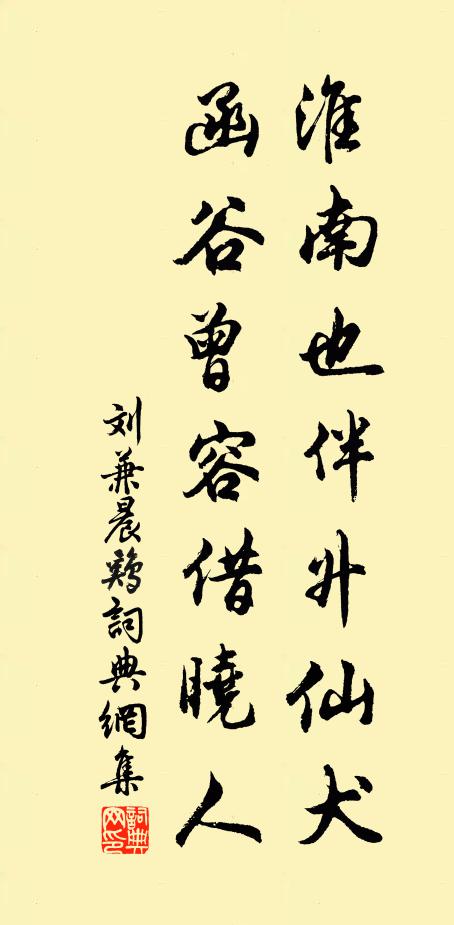 淮南也伴升仙犬
函谷曾容借曉人
刘兼晨鷄詞典網集
詞典網印